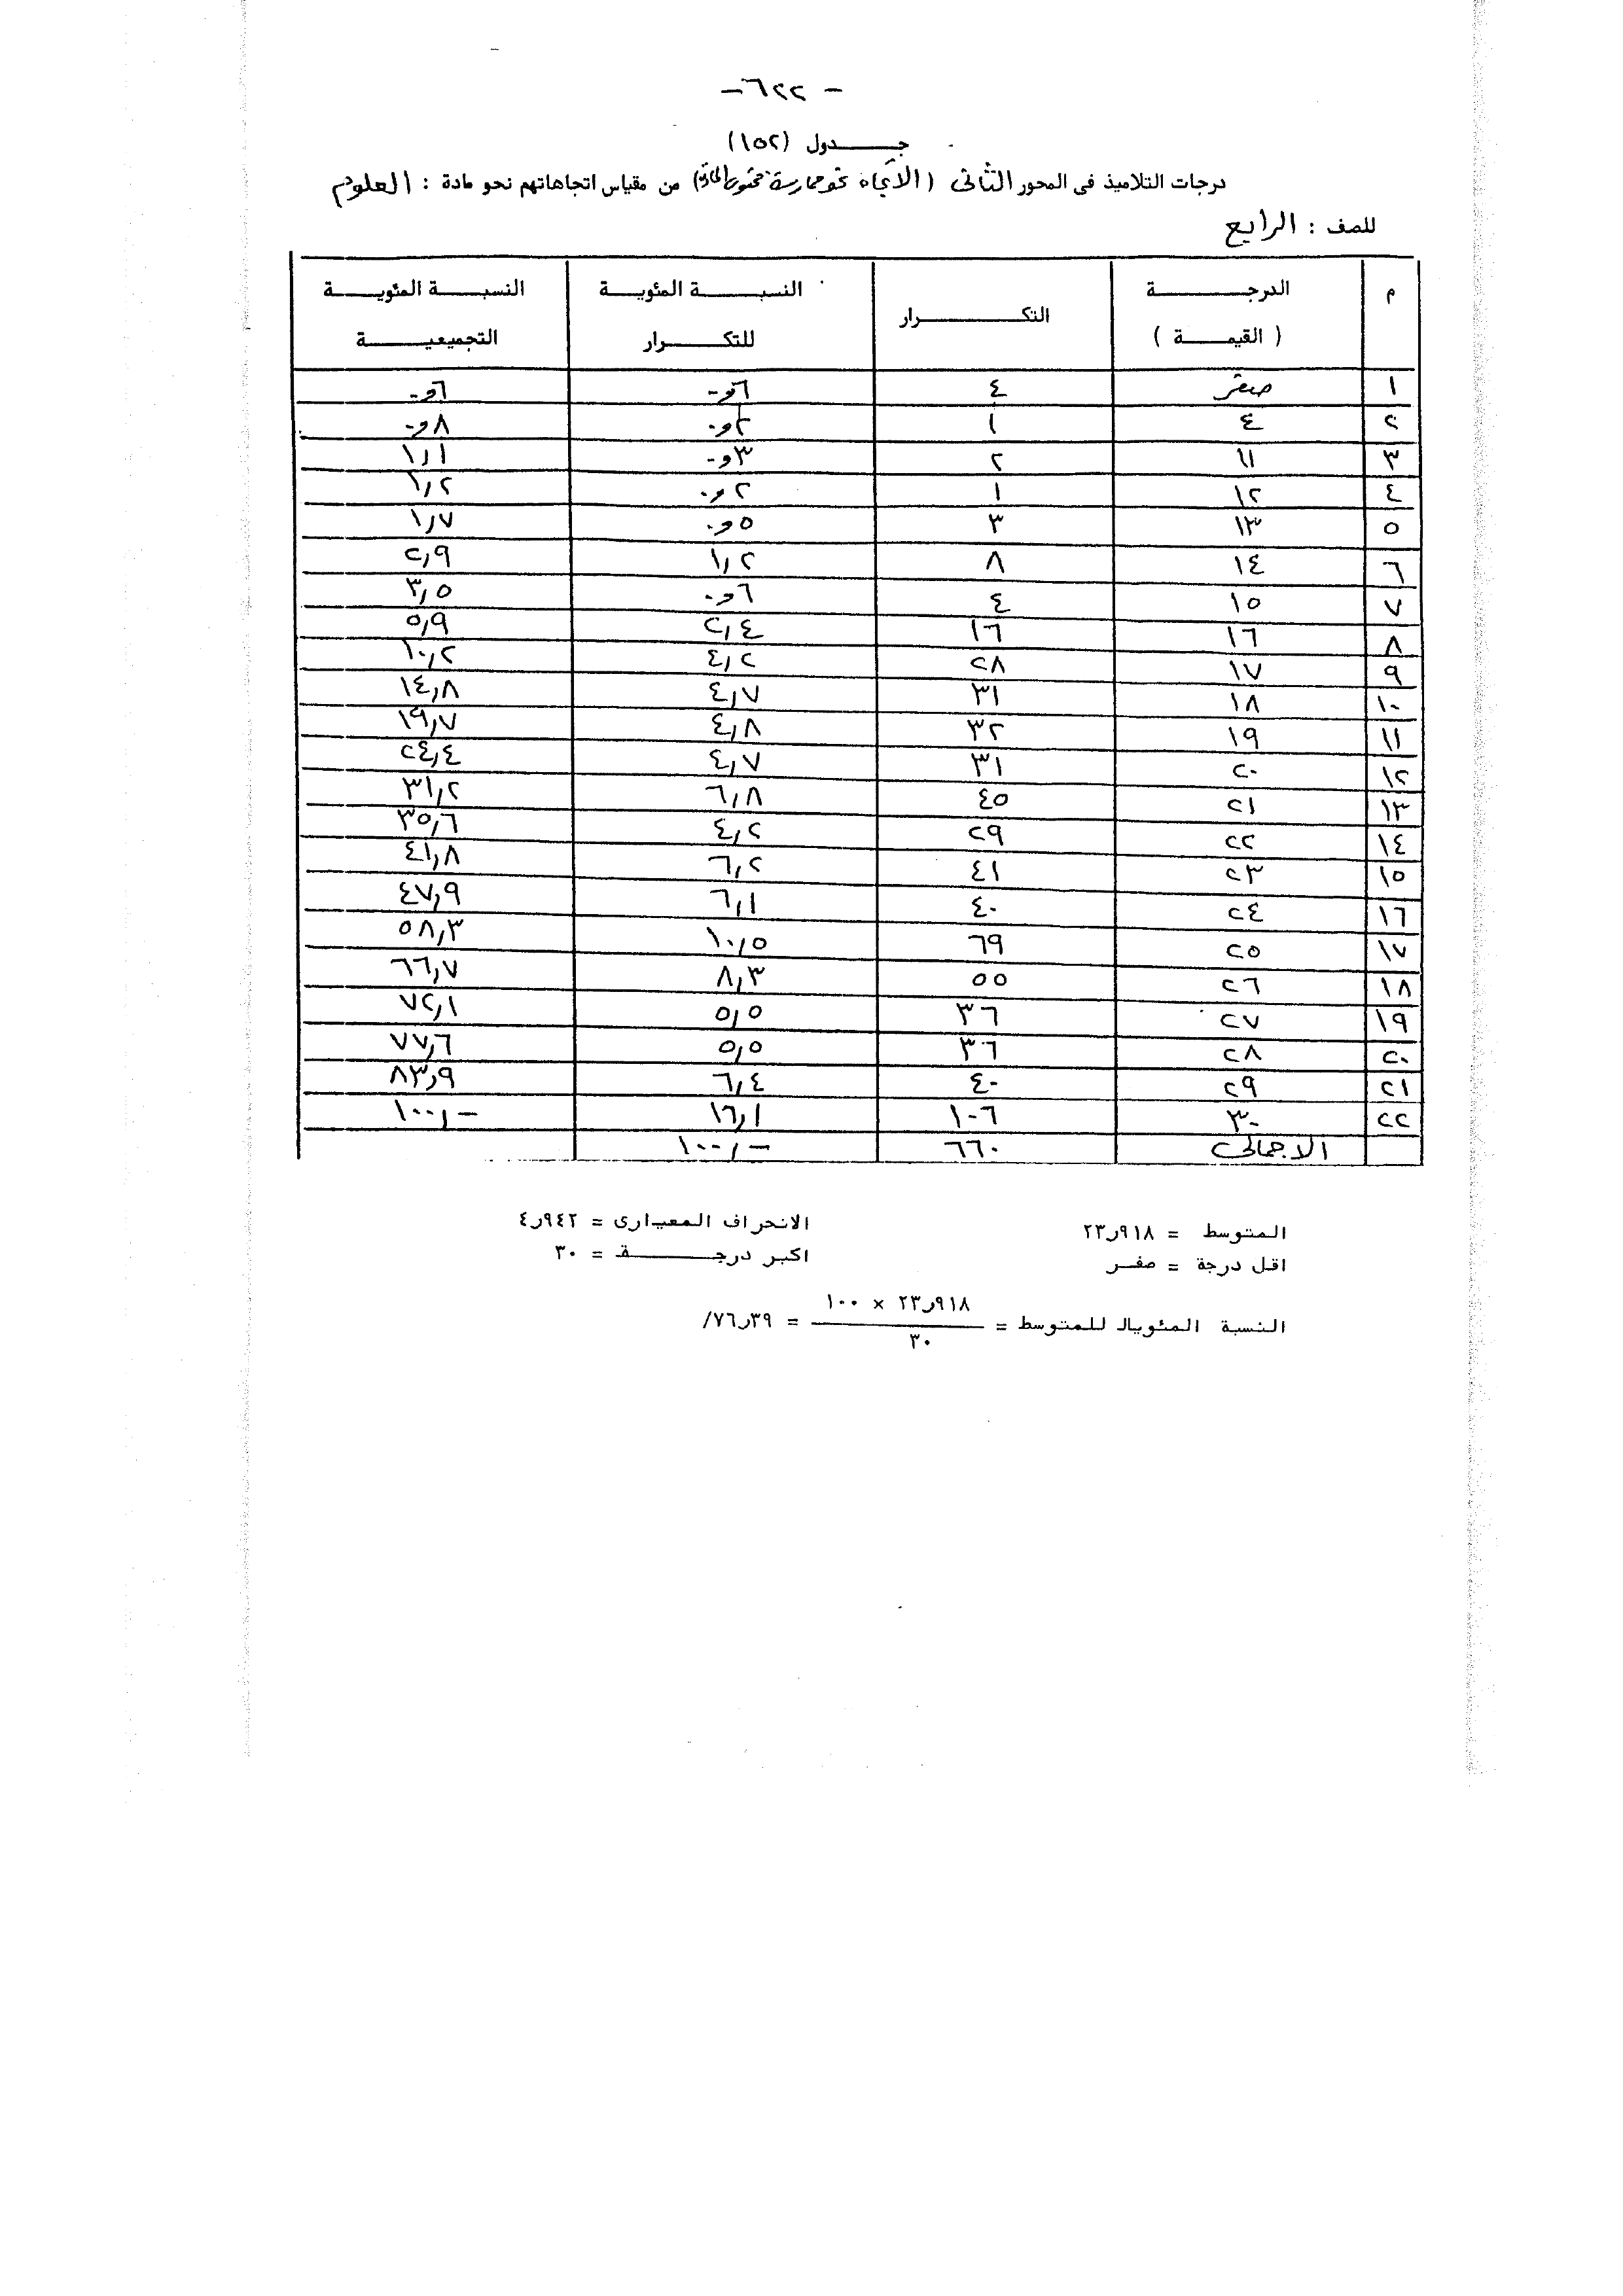 - ٦٢٢ -
جـــدول (١٥٢)
درجات التلاميذ فى المحور الثانى (الاتجاه نحو ممارسة محتوى المادة) من مقياس اتجاهاتهم نحو مادة : العلوم
للصف : الرابع
م | الدرجـــة ( القيمـــة ) | التكـــرار | النسبـــة المئويـــة للتكـــرار | النسبـــة المئويـــة التجميعيـــة
١ | صفر | ٤ | ٦و٠ | ٦و٠
٢ | ٤ | ١ | ٢و٠ | ٨و٠
٣ | ١١ | ٢ | ٣و٠ | ١٫١
٤ | ١٢ | ١ | ٢و٠ | ١٫٢
٥ | ١٣ | ٣ | ٥و٠ | ١٫٧
٦ | ١٤ | ٨ | ١٫٢ | ٢٫٩
٧ | ١٥ | ٤ | ٦و٠ | ٣٫٥
٨ | ١٦ | ١٦ | ٢٫٤ | ٥٫٩
٩ | ١٧ | ٢٨ | ٤٫٢ | ١٠٫٢
١٠ | ١٨ | ٣١ | ٤٫٧ | ١٤٫٨
١١ | ١٩ | ٣٢ | ٤٫٨ | ١٩٫٧
١٢ | ٢٠ | ٣١ | ٤٫٧ | ٢٤٫٤
١٣ | ٢١ | ٤٥ | ٦٫٨ | ٣١٫٢
١٤ | ٢٢ | ٢٩ | ٤٫٢ | ٣٥٫٦
١٥ | ٢٣ | ٤١ | ٦٫٢ | ٤١٫٨
١٦ | ٢٤ | ٤٠ | ٦٫١ | ٤٧٫٩
١٧ | ٢٥ | ٦٩ | ١٠٫٥ | ٥٨٫٣
١٨ | ٢٦ | ٥٥ | ٨٫٣ | ٦٦٫٧
١٩ | ٢٧ | ٣٦ | ٥٫٥ | ٧٢٫١
٢٠ | ٢٨ | ٣٦ | ٥٫٥ | ٧٧٫٦
٢١ | ٢٩ | ٤٠ | ٦٫٤ | ٨٣٫٩
٢٢ | ٣٠ | ١٠٦ | ١٦٫١ | ١٠٠٫-
الاجمالى | ٦٦٠ | ١٠٠٫-
المتوسط = ٩١٨ر٢٣ الانحراف المعيارى = ٩٤٢ر٤
اقل درجة = صفـر اكبر درجـــة = ٣٠
النسبة المئويا للمتوسط = ٩١٨ر٢٣ × ١٠٠ / ٣٠ = ٣٩ر٧٦/